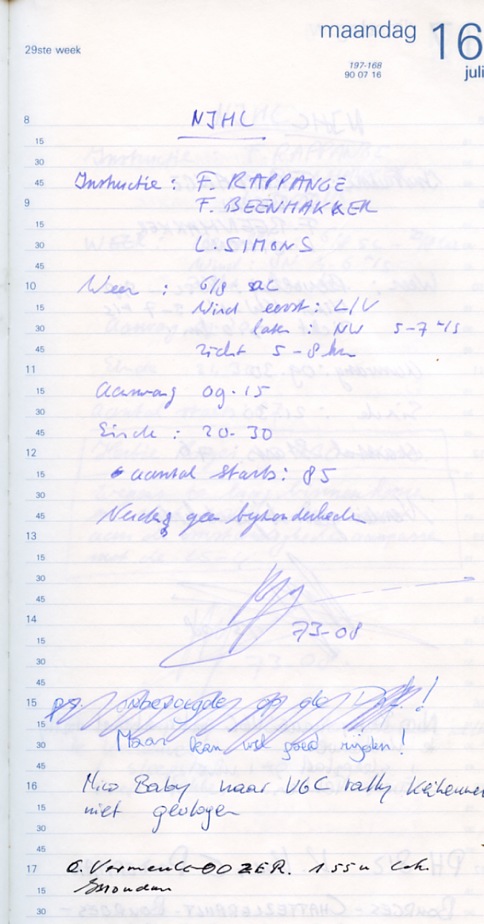 maandag 16
29ste week
197-168
90 07 16
juli
8
NJHL
15
30
45 Instructie: F. RAPPANGE
9 F. BEENHAKKER
15
30 L. SIMONS
45
10 Weer : 6/8 ac
15 Wind eerst: L/V
30 later: NW 5-7 m/s
45 zicht 5-8 km
11
15 Aanvang 09.15
30
45 Einde : 20.30
12
15 aantal starts: 85
30
45 Verder geen bijzonderheden
13
15
30
45
14
15 73-08
30
45
15 onbevoegde op de
15
30 Maar kan wel goed rijden!
45
16 Nico Baby naar VGC rally
15 niet gevlogen
30
45
17
15
30